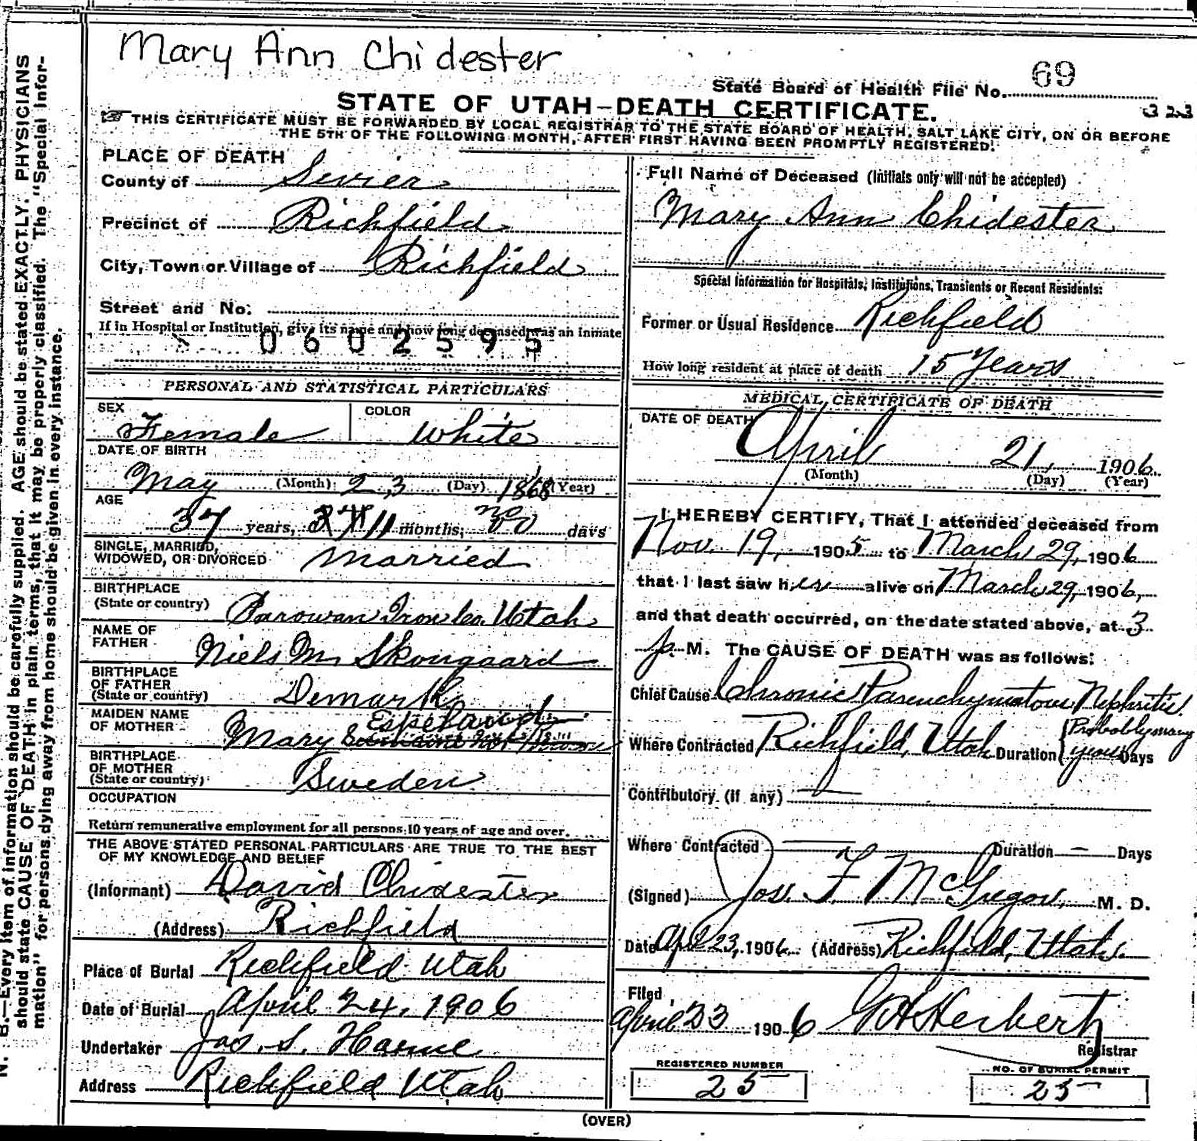 Mary Ann Chidester
State Board of Health File No. 69
323
STATE OF UTAH—DEATH CERTIFICATE.
☞ THIS CERTIFICATE MUST BE FORWARDED BY LOCAL REGISTRAR TO THE STATE BOARD OF HEALTH, SALT LAKE CITY, ON OR BEFORE
THE 5TH OF THE FOLLOWING MONTH, AFTER FIRST HAVING BEEN PROMPTLY REGISTERED.
N. B.—Every item of information should be carefully supplied. AGE should be stated EXACTLY. PHYSICIANS
should state CAUSE OF DEATH in plain terms, that it may be properly classified. The "Special Infor-
mation" for persons dying away from home should be given in every instance.
PLACE OF DEATH
County of Sevier
Precinct of Richfield
City, Town or Village of Richfield
Street and No.
If in Hospital or Institution, give its name and how long deceased was an inmate
0602595
PERSONAL AND STATISTICAL PARTICULARS
SEX Female
COLOR White
DATE OF BIRTH
May (Month) 23 (Day) 1868 (Year)
AGE
37 years, 11 months, no days
SINGLE, MARRIED,
WIDOWED, OR DIVORCED Married
BIRTHPLACE
(State or country) Parowan Iron Co. Utah
NAME OF
FATHER Niels M. Skougaard
BIRTHPLACE
OF FATHER
(State or country) Demark
MAIDEN NAME
OF MOTHER Mary
BIRTHPLACE
OF MOTHER
(State or country) Sweden
OCCUPATION
Return remunerative employment for all persons 10 years of age and over.
THE ABOVE STATED PERSONAL PARTICULARS ARE TRUE TO THE BEST
OF MY KNOWLEDGE AND BELIEF
(Informant) David Chidester
(Address) Richfield
Place of Burial Richfield Utah
Date of Burial April 24, 1906
Undertaker Jas. S.
Address Richfield Utah
Full Name of Deceased (Initials only will not be accepted)
Mary Ann Chidester
Special Information for Hospitals, Institutions, Transients or Recent Residents:
Former or Usual Residence Richfield
How long resident at place of death 15 Years
MEDICAL CERTIFICATE OF DEATH
DATE OF DEATH
April 21, 1906.
(Month) (Day) (Year)
I HEREBY CERTIFY, That I attended deceased from
Nov. 19, 1905 to March 29, 1906
that I last saw her alive on March 29, 1906,
and that death occurred, on the date stated above, at 3
p. M. The CAUSE OF DEATH was as follows:
Chief Cause Chronic Parenchymatous Nephritis.
Where Contracted Richfield, Utah Duration (Probably many years Days
Contributory (if any)
Where Contracted Duration — Days
(Signed) Jos. F. McGregor, M. D.
Date Apl 23, 1906 (Address) Richfield, Utah.
Filed
April 23 1906 G A Herbert
Registrar
REGISTERED NUMBER
25
NO. OF BURIAL PERMIT
25
(OVER)